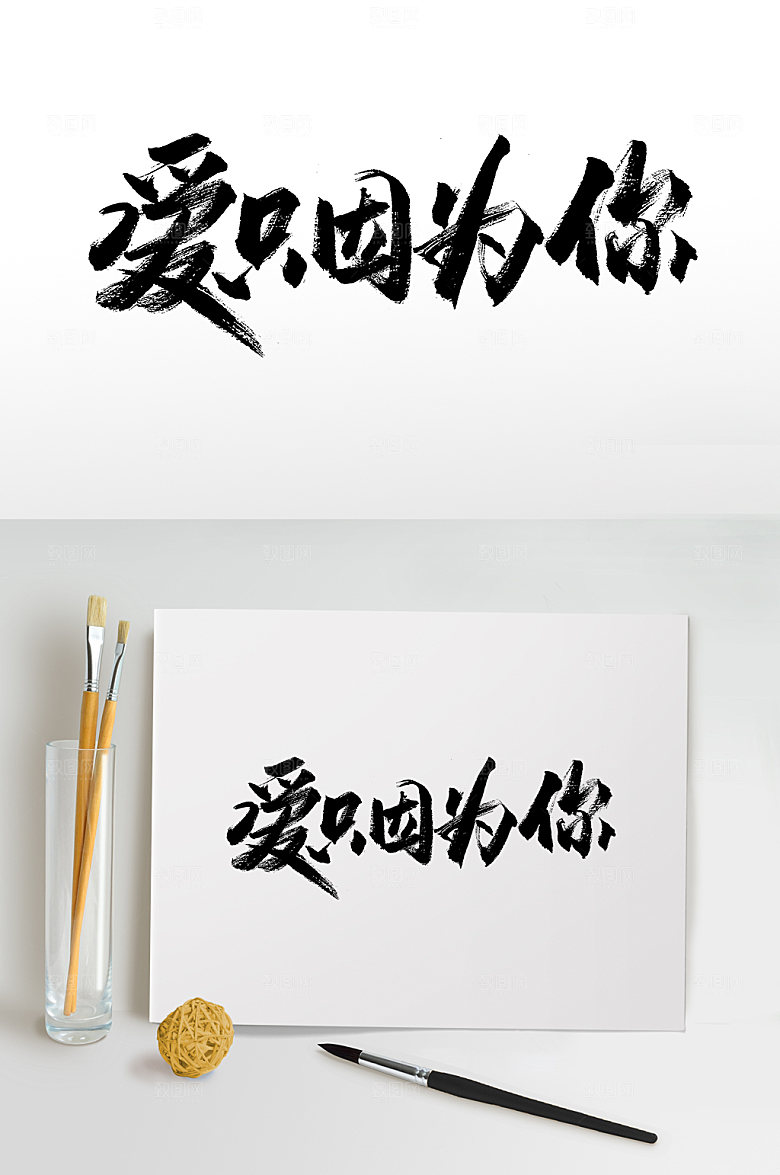 爱只因为你
爱只因为你